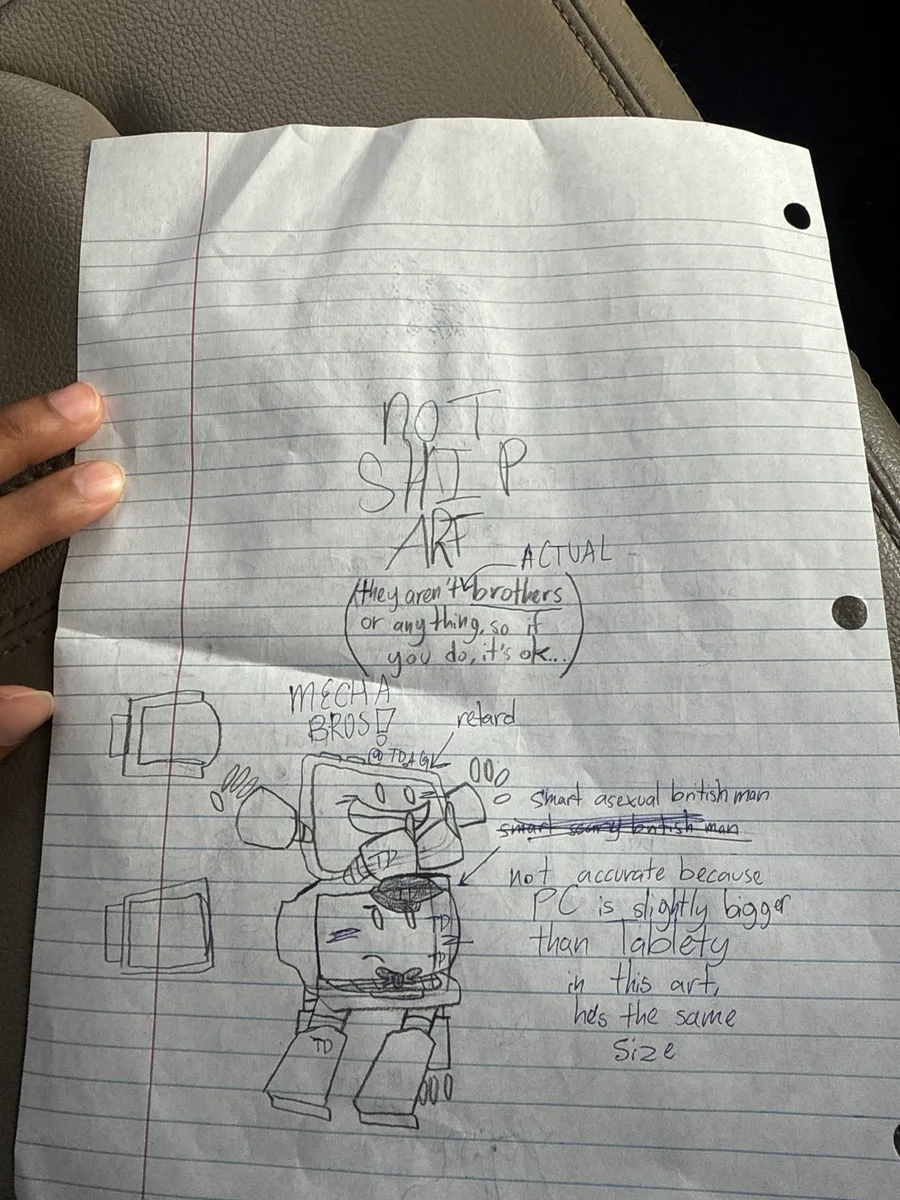 NOT
SHIP
ART
ACTUAL
(they aren't brothers
or anything, so if
you do, it's ok...)
MECHA
BROS!
retard
@TDAG
smart asexual british man
smart scary british man
not accurate because
PC is slightly bigger
than Tablety
in this art,
he's the same
size
TD
TD
TD
TD